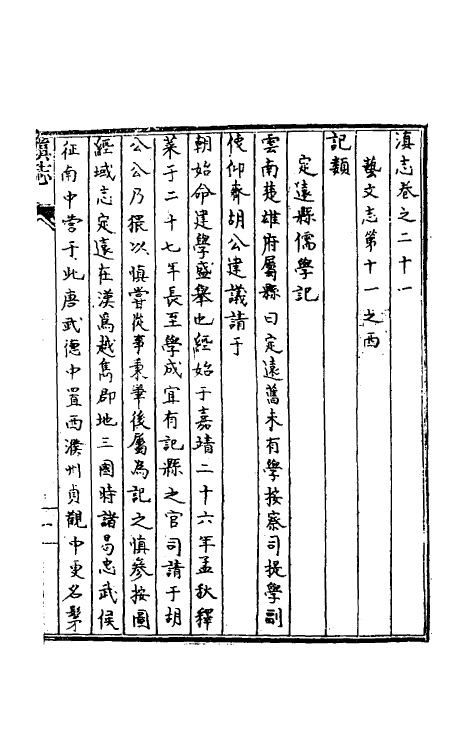 滇志卷之二十一
藝文志第十一之四
記類
定遠縣儒學記
雲南楚雄府屬縣曰定遠舊未有學按察司提學副
使仰齊胡公建議請于
朝始命建學盛舉也經始于嘉靖二十六年孟秋釋
菜于二十七年長至學成宜有記縣之官司請于胡
公公乃猥以慎嘗從事秉筆後屬為記之慎參按圖
經域志定遠在漢為越雋郡地三國時諸葛忠武侯
征南中嘗于此唐武德中置西濮州貞觀中更名髳
滇志